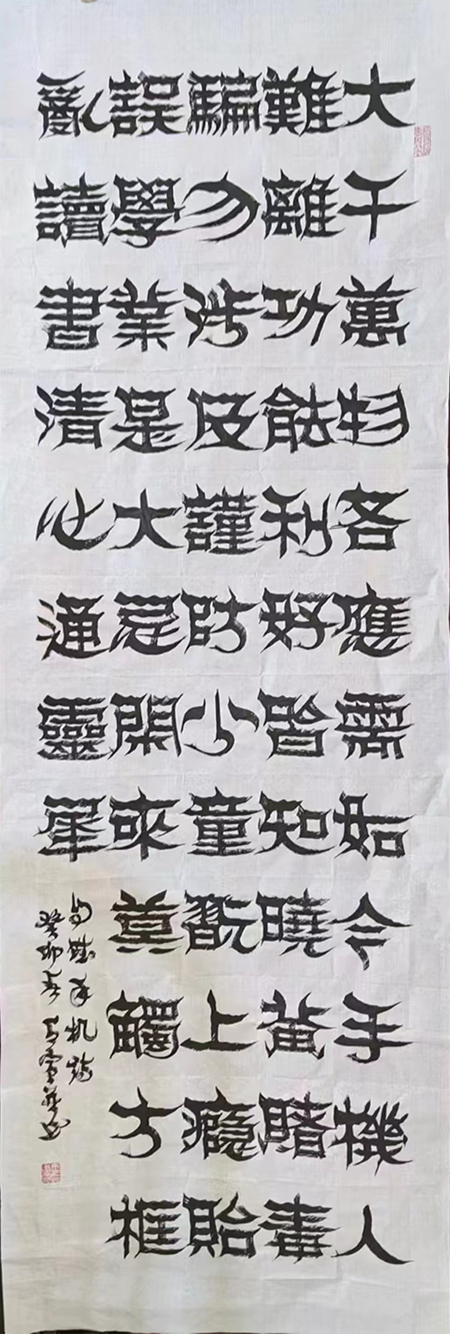 大千萬物各應需如今手機人
難離功能利好皆知曉黃賭毒
騙勿涉及謹防少童翫上癮貽
誤學業是大忌閑來莫觸方框
亂讀書清心通靈犀
手机
癸卯春